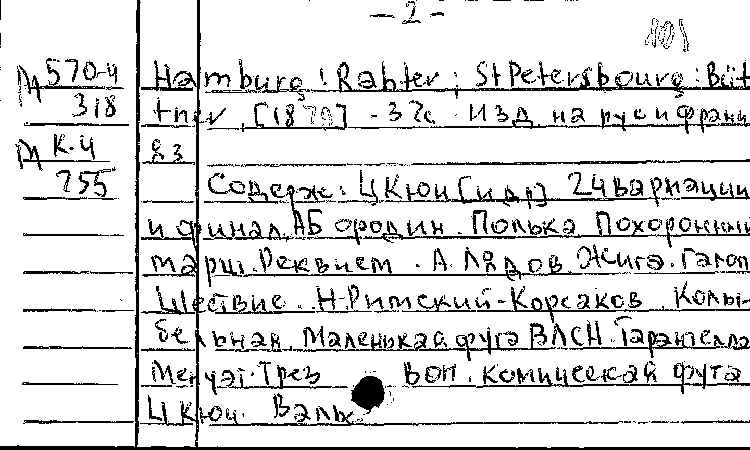 - 2 -
101
М 570-4 Hamburg: Rahter; St Petersbourg: Büt
318 tner, [1879] - 37с Изд на рус и франц
М К-4 яз
755 Содерж: Ц Кюи [и др] 24 вариации
и финал. А Бородин. Полька Похоронный
марш. Реквием. А. Лядов. Жига. Галоп
Шествие. Н. Римский-Корсаков. Колы-
бельная. Маленькая фуга BACH. Тарантелла
Менуэт. Трезвон. Комическая фуга
Ц Кюи. Вальс